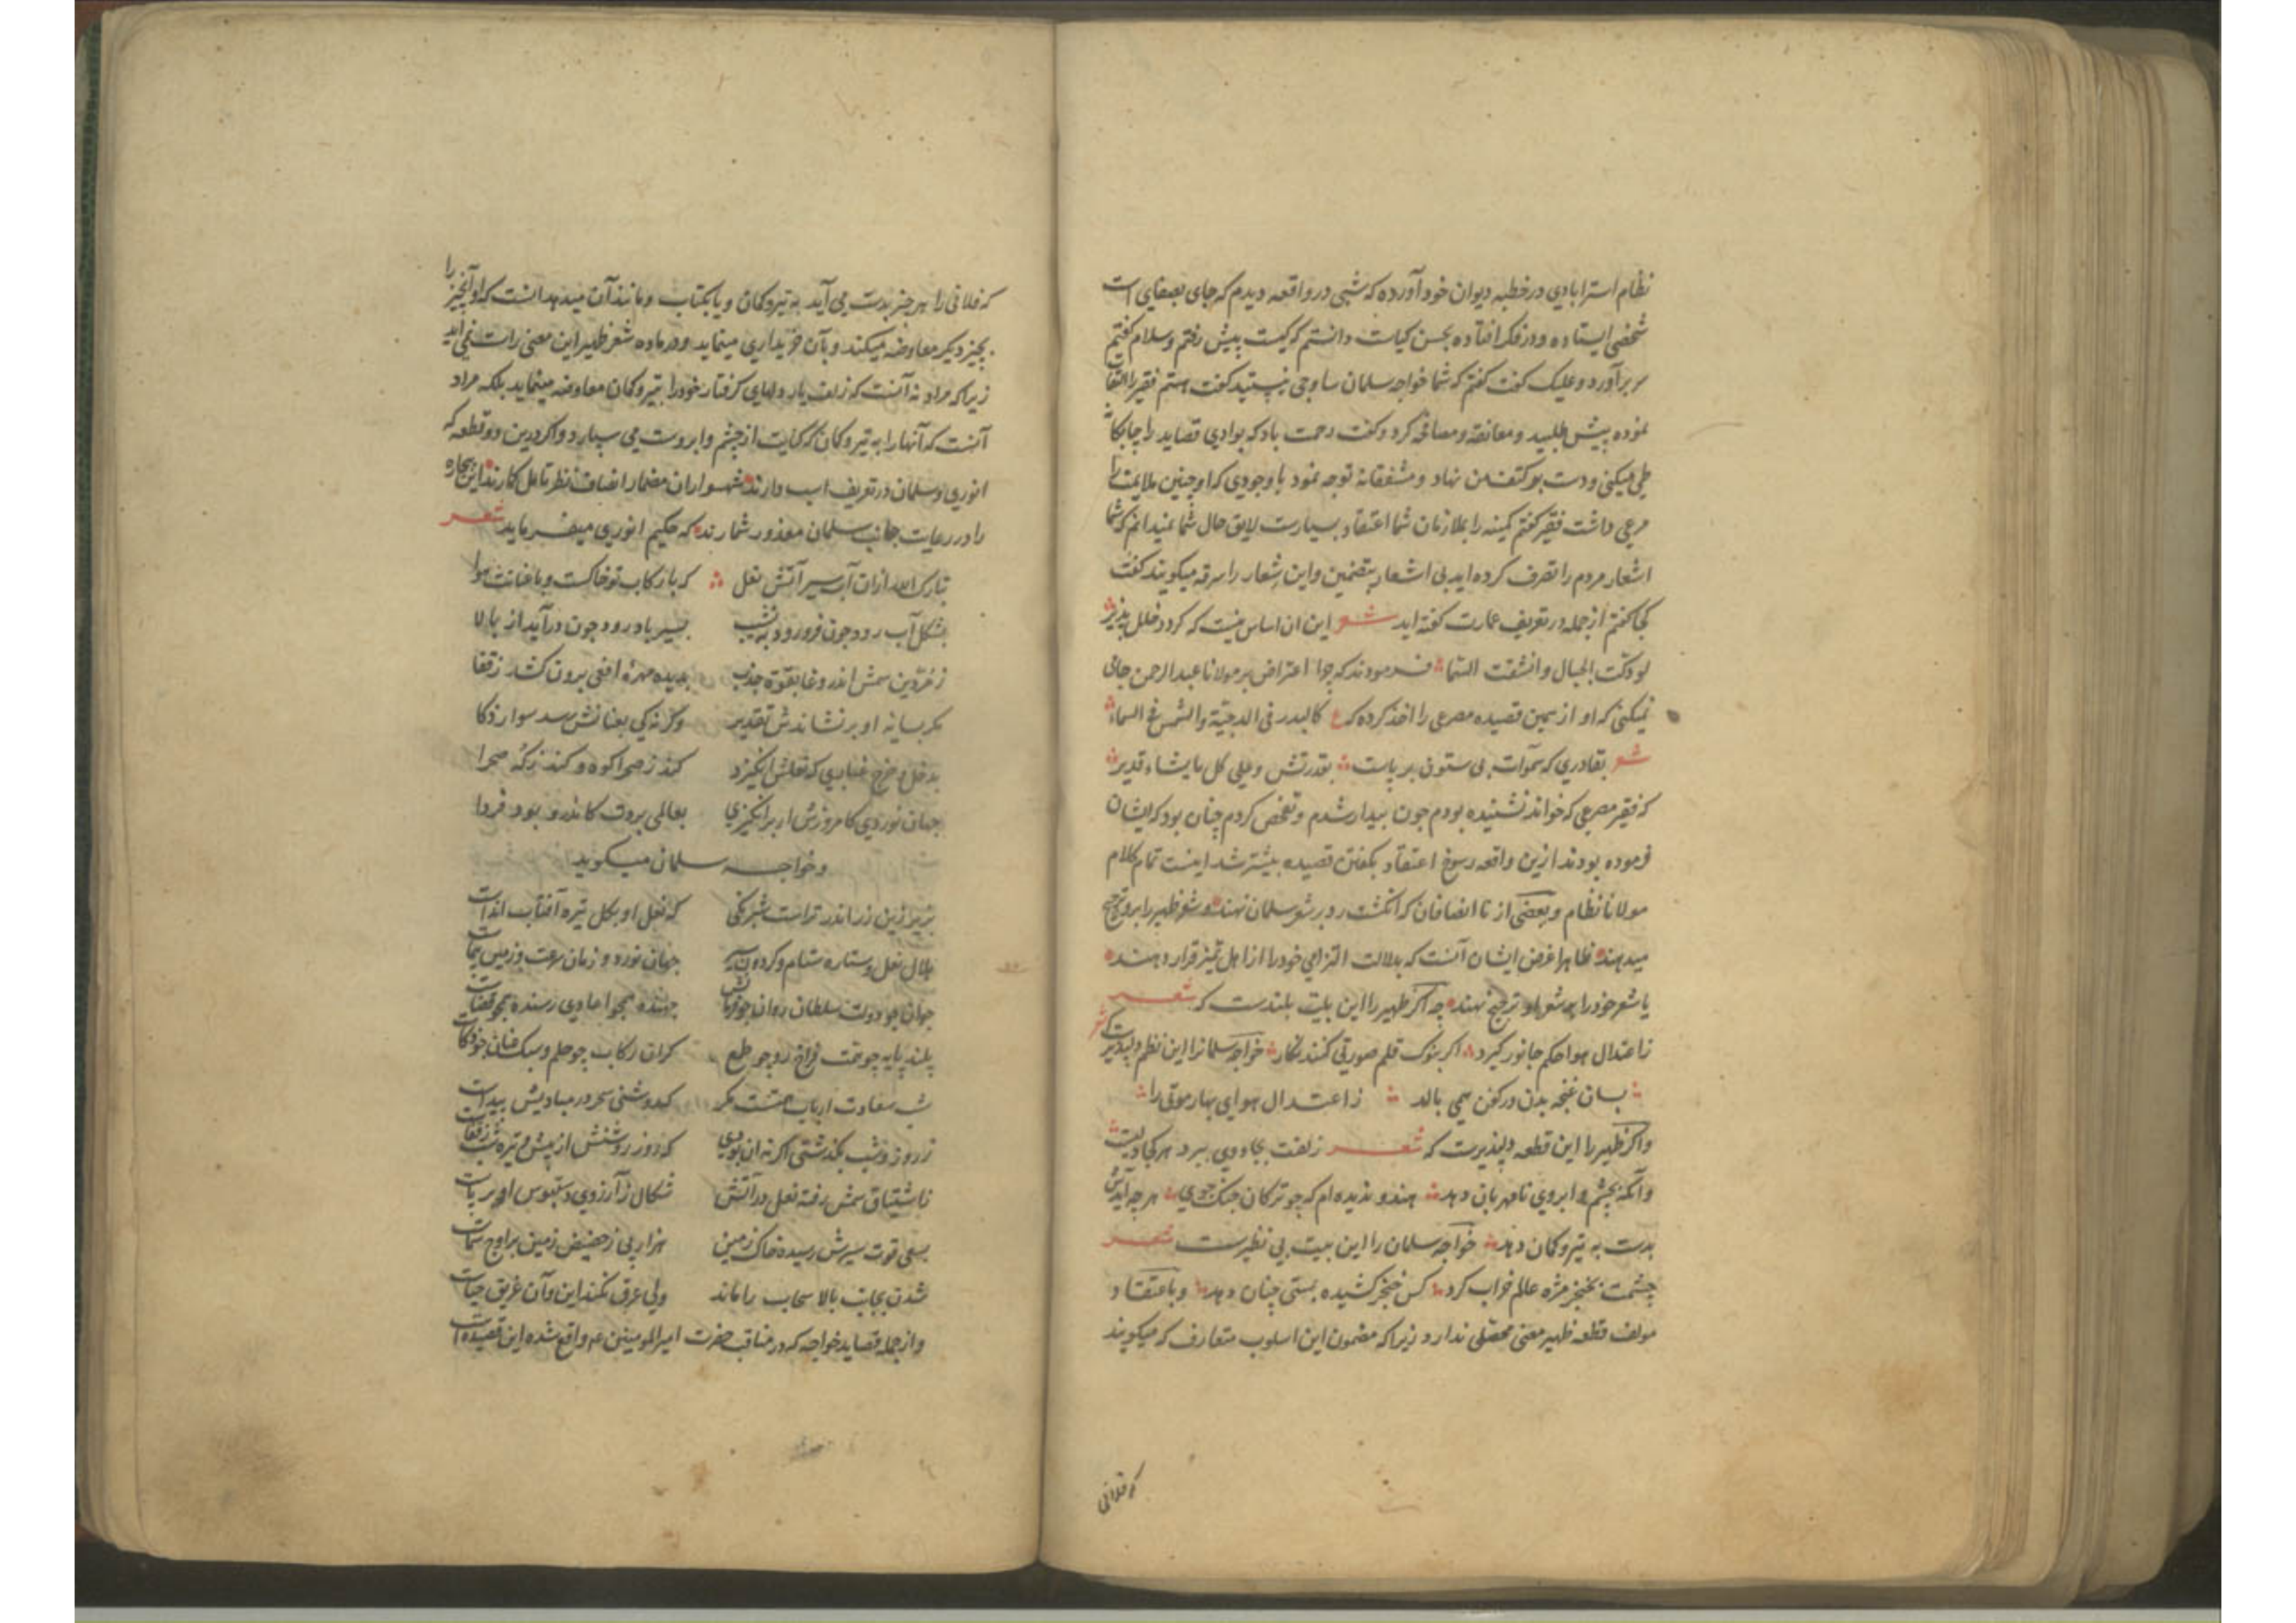 نظام استرابادی در خطبه دیوان خود آورده که شبی در واقعه دیدم که جای بصفایی است
شخصی ایستاده و در فکر افتاده بحسن کیاست دانستم که کیست پیش رفتم و سلام گفتم
سر برآورد و علیک گفت گفتم که شما خواجه سلمان ساوجی نیستید گفت هستم فقیر را التفات
نموده پیش طلبید و معانقه و مصافحه کرد و گفت رحمت باد که بوادی قصاید را چابکانه
طی میکنی و دست بر کتف من نهاد و مشفقانه توجه نمود با وجودی که او چنین ملایمت را
مرعی داشت فقیر گفتم کمینه را بملازمان شما اعتقاد بسیارست لایق حال شما نمیدانم که شما
اشعار مردم را تصرف کرده اید بی اشعار بتضمین و این اشعار را سرقه میکویند گفت
کجا گفتم از جمله در تعریف عمارت گفته اید شعر این ان اساس نیست که کردد خلل پذیر
لو دکت الجبال و انشقت السما فرمودند که چرا اعتراض بر مولانا عبدالرحمن جامی
نمیکنی که او از همین قصیده مصرعی را اخذ کرده که ع کالبدر فی الدجیة والشمس فی السماء
شعر بقادری که سموات بی ستون بر پاست بقدرتش و علی کل ما یشاء قدیر
که فقیر مصرعی که خواند نشنیده بودم جون بیدار شدم و تفحص کردم چنان بود که ایشان
فرموده بودند ازین واقعه رسوخ اعتقاد بکفتن قصیده بیشتر شد اینست تمام کلام
مولانا نظام و بعضی از نا انصافان که انکشت رد بر شعر سلمان نهند و شعر ظهیر را برو ترجیح
میدهند ظاهرا غرض ایشان آنست که بدلالت التزامی خود را از اهل تمیز قرار دهند
یا شعر خود را بر شعر او ترجیح نهند چه اکر ظهیر را این بیت بلندست که شعر
ز اعتدال هوا حکم جانور کیرد اکر بنوک قلم صورتی کنند نکار خواجه سلمانرا این نظم دلپذیرست که شعر
بسان غنجه بدن در کفن همی بالد ز اعتدال هوای بهار موتی را
و اکر ظهیر را این قطعه دلپذیرست که شعر زلفت بجادوی ببرد هر کجا دلیست
وانکه بچشم و ابروی نامهربان دهد هندو ندیده ام که چو ترکان جنک جوی هر چه آیدش
بدست به تیر و کمان دهد خواجه سلمان را این بیت بی نظیرست شعر
چشمت بخنجر مژه عالم خراب کرد کس خنجر کشیده بمستی چنان دهد و باعتقاد
مولف قطعه ظهیر معنی محصلی ندارد زیرا که مضمون این اسلوب متعارف که میکویند
که فلانی
که فلانی را هر چیز بدست می آید به تیر و کمان و یا بکتاب و مانند آن میدهد انست که او آنچیز را
بچیز دیکر معاوضه میکند و بآن خریداری مینماید و در ماده شعر ظهیر این معنی راست نمی اید
زیرا که مراد نه آنست که زلف یار دلهای کرفتار خود را بتیر و کمان معاوضه مینماید بلکه مراد
آنست که آنها را به تیر و کمان که کنایت از چشم و ابروست می سپارد و اکر درین دو قطعه که
انوری و سلمان در تعریف اسب دارند شهسواران مضمار انصاف نظر تامل کارند این بیچاره
را در رعایت جانب سلمان معذور شمارند که حکیم انوری میفرماید شعر
تبارک الله ازان آب سیر آتش نعل که با رکاب تو خاکست و با عنانت هوا
بشکل آب رود جون فرو رود به نشیب بسیر باد رود جون درآید از بالا
ز خردین سمش اندر وغا بقوة جذب بدیده مهرهٔ افعی برون کشد ز قفا
مکر بسایه او بر نشاندش تقدیر وکرنه کی بعنانش رسد سوار ذکا
بدخل و خرج غباری که نعلش انکیزد کند ز صحرا کوه و کند ز که صحرا
جهان نوردی کامروزش ار برانکیزی بعالمی بردت کاندرو بود فردا
و خواجه سلمان میکوید
بزیر زین زر اندر تراست شبرنکی که نعل او بکل تیره آفتاب انداست
هلال نعل و ستاره ستام و کردون سیر جهان نورد و زمان سرعت و زمین پیماست
جوان چو دولت سلطان روان چو فرمانش جهنده همچو اعادی رسنده همچو قضاست
بلند پایه چو همت فراخ رو چو طمع کران رکاب چو حلم و سبک عنان چو ذکاست
شب سعادت ارباب همتست مکر که روشنی سحر در مبادیش پیداست
ز روز و شب بکذشتی اکر نه آن بودی که روز روشنش از پیش و تیره شب ز قفاست
ز اشتیاق سمش رفته نعل در آتش شکال ز آرزوی دستبوس او بر پاست
بسعی قوت سیرش رسیده خاک زمین هزار پی ز حضیض زمین بر اوج سماست
شدن بجانب بالا سحاب را ماند ولی عرق نکند این و آن غریق حیاست
و از جمله قصاید خواجه که در مناقب حضرت امیرالمومنین عم واقع شده این قصیده است